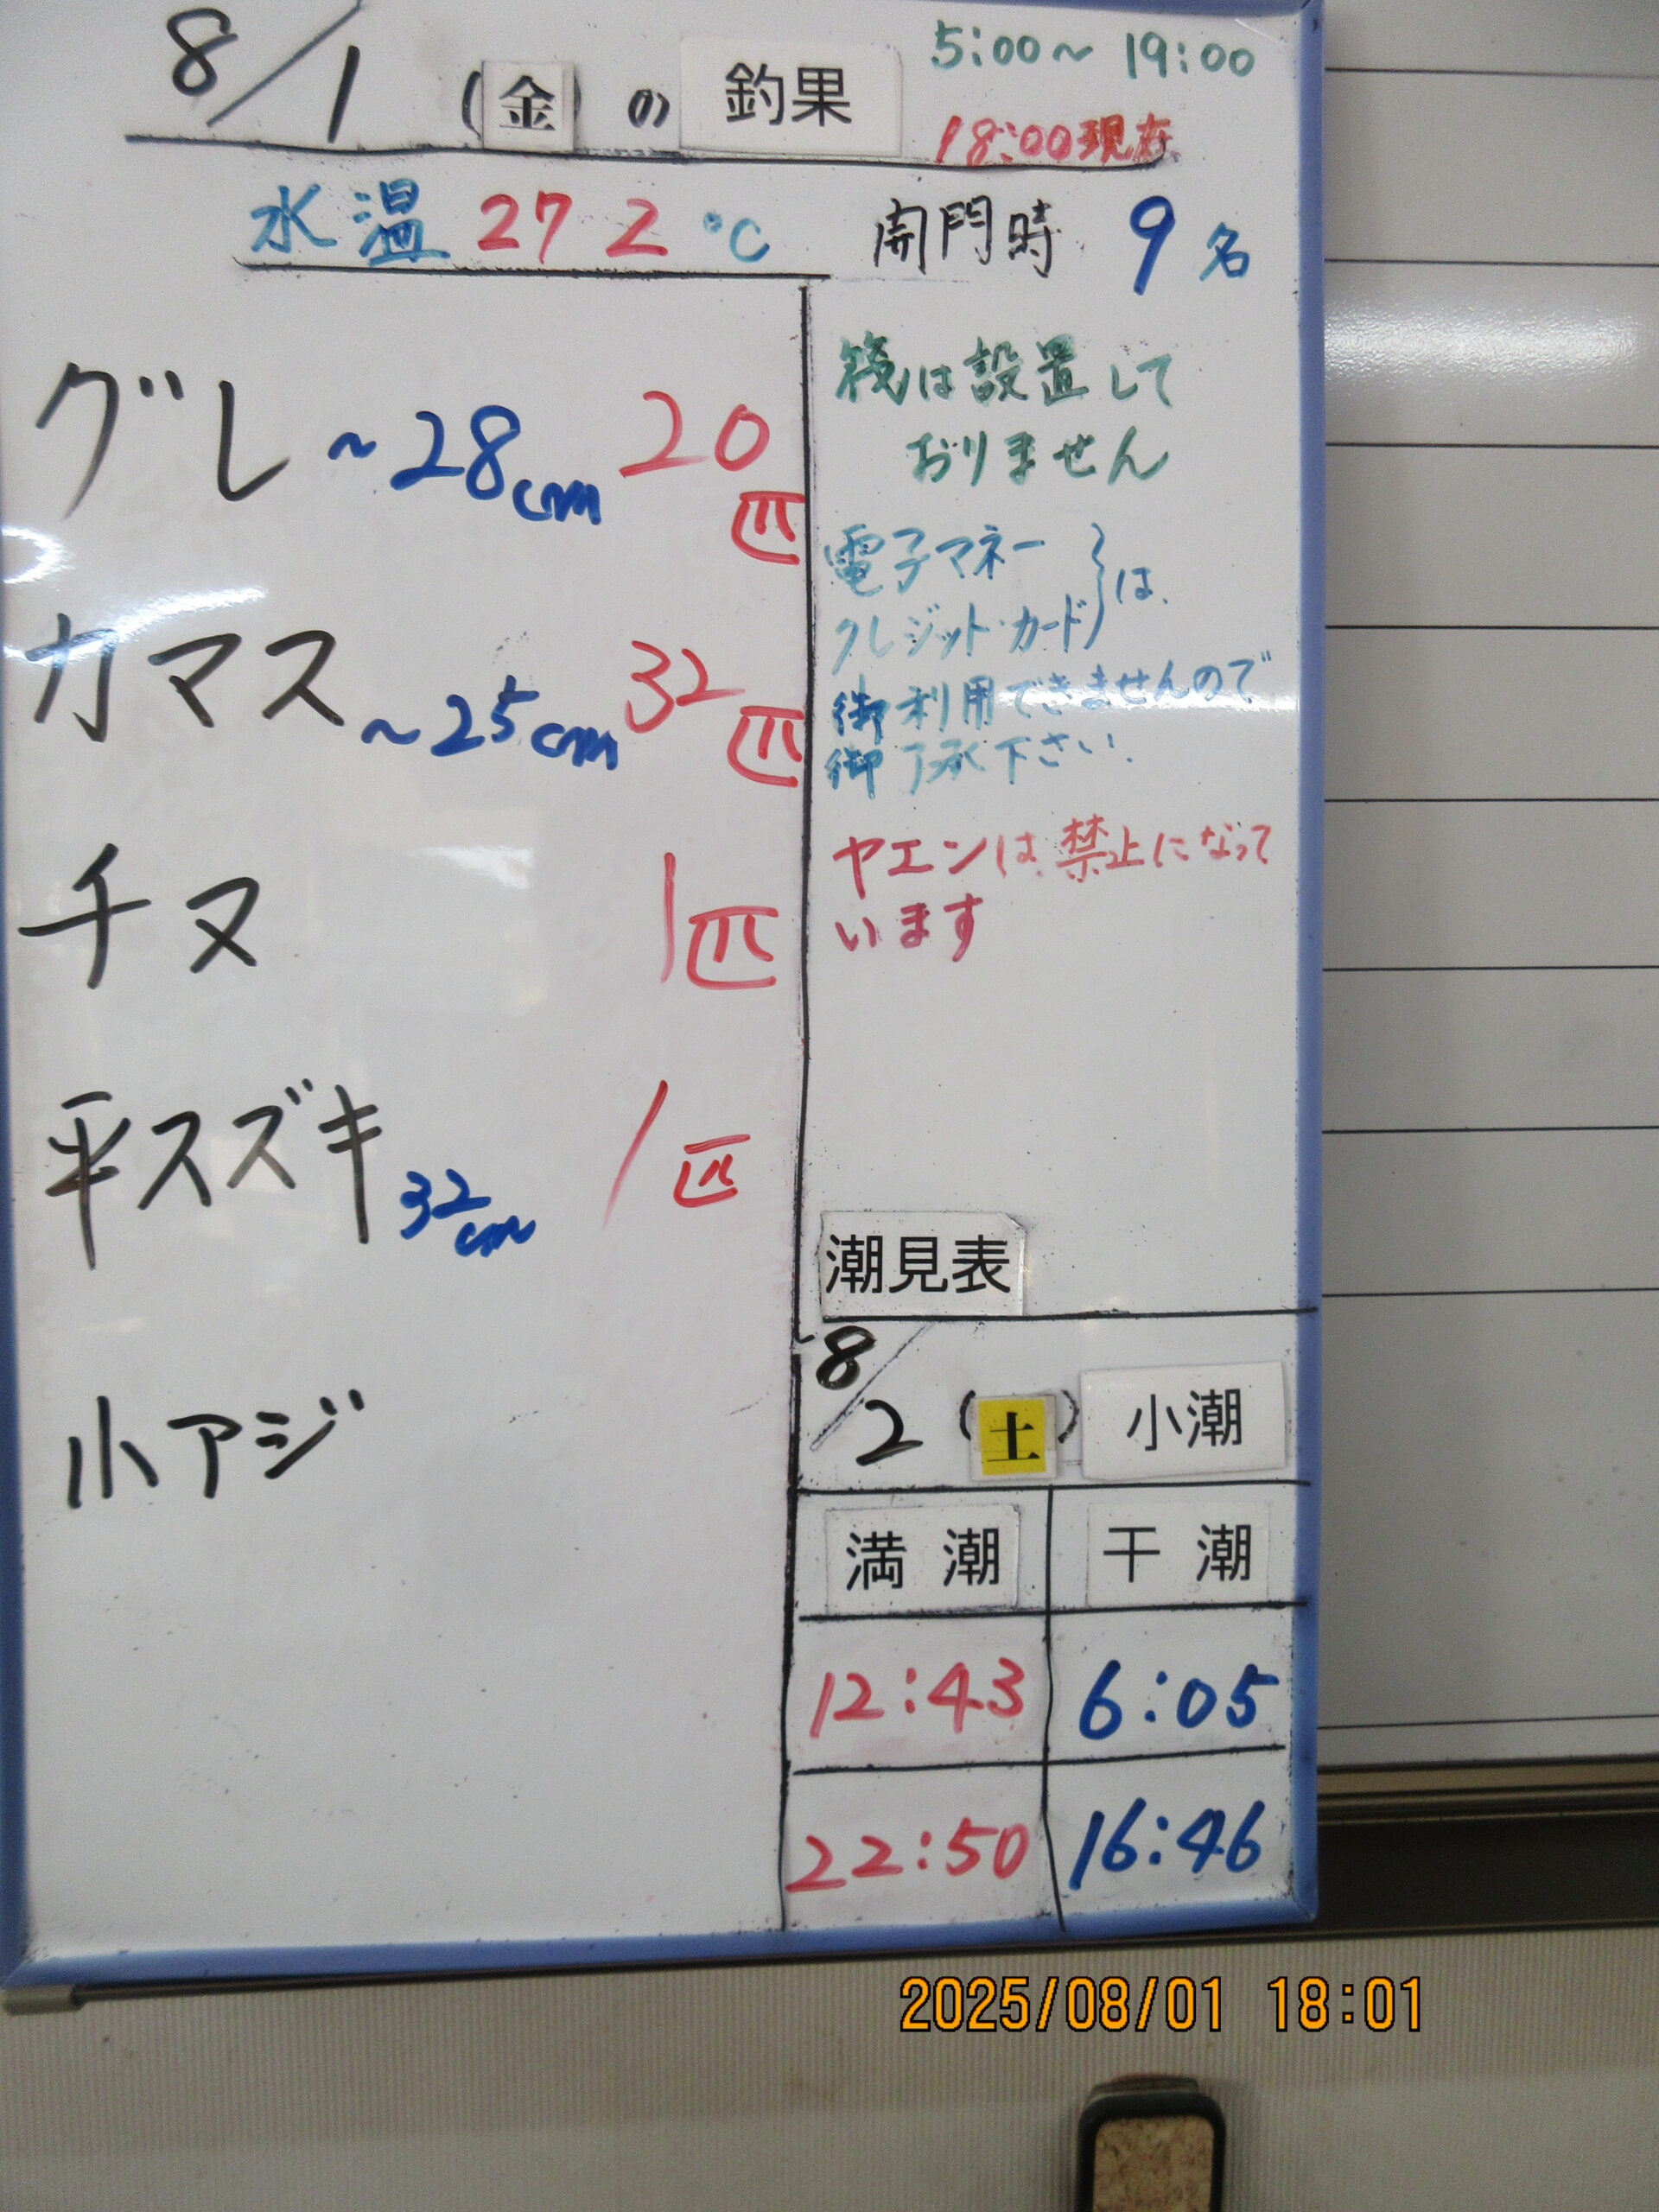 8/1 (金) の 釣果
5:00～19:00
18:00現在
水温 27 2 ℃
開門時 9名
グレ ～28cm 20匹
カマス ～25cm 32匹
チヌ 1匹
平スズキ 32cm 1匹
小アジ
筏は設置して
おりません
電子マネー
クレジット・カード}は
御利用できませんので
御了承下さい.
ヤエンは禁止になって
います
潮見表
8/2 (土) 小潮
満潮 干潮
12:43 6:05
22:50 16:46
2025/08/01 18:01